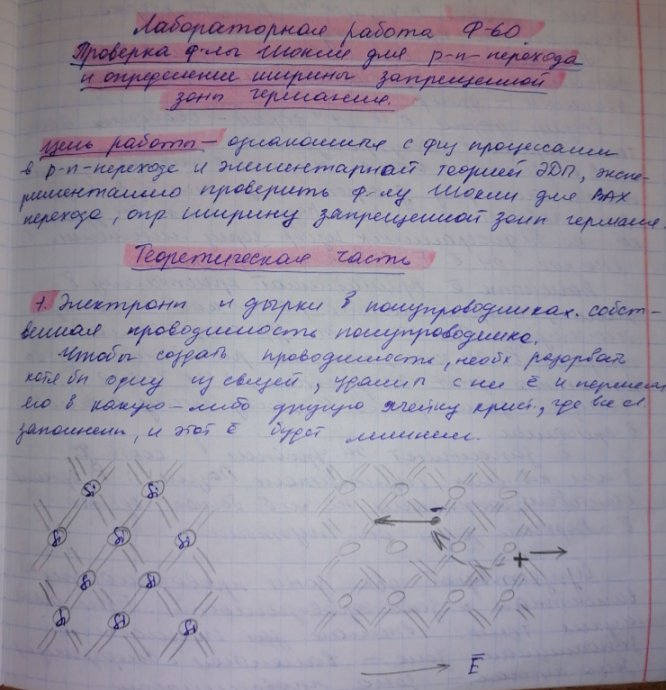 Лабораторная работа Ф-60
Проверка ф-лы Шокли для p-n-перехода
и определение ширины запрещенной
зоны германия.
Цель работы - ознакомиться с физ процессами
в p-n-переходе и элементарной теорией ЭДП, экспе-
риментально проверить ф-лу Шокли для ВАХ
перехода, опр ширину запрещенной зоны германия.
Теоретическая часть
1. Электроны и дырки в полупроводниках. собст-
венная проводимость полупроводника.
Чтобы создать проводимость, необх разорвать
хотя бы одну из связей, удалить с нее ē и перемест
его в какую-либо другую ячейку крист., где все св.
заполнены, и этот ē будет лишним.
Si Si
Si Si Si
Si Si
Si Si Si
-
+
E